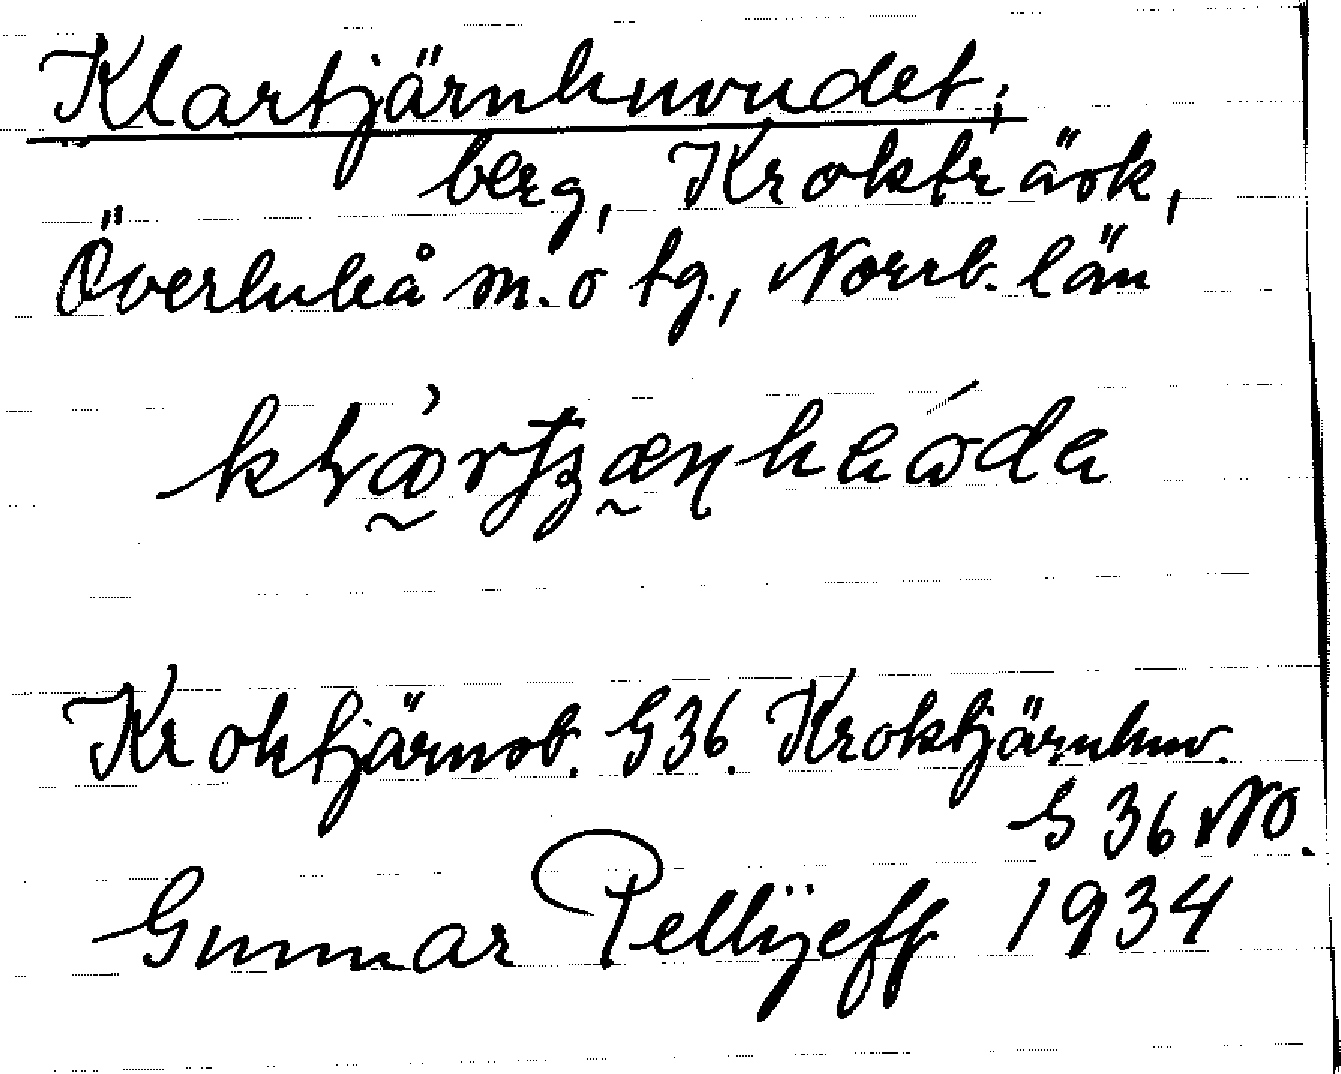 Klartjärnhuvudet,
berg, Krokträsk,
Överluleå sn. o tg., Norrb. län
Kroktjärnsb. G36. Kroktjärnhuv.
G 36 NO.
Gunnar Pellijeff 1934